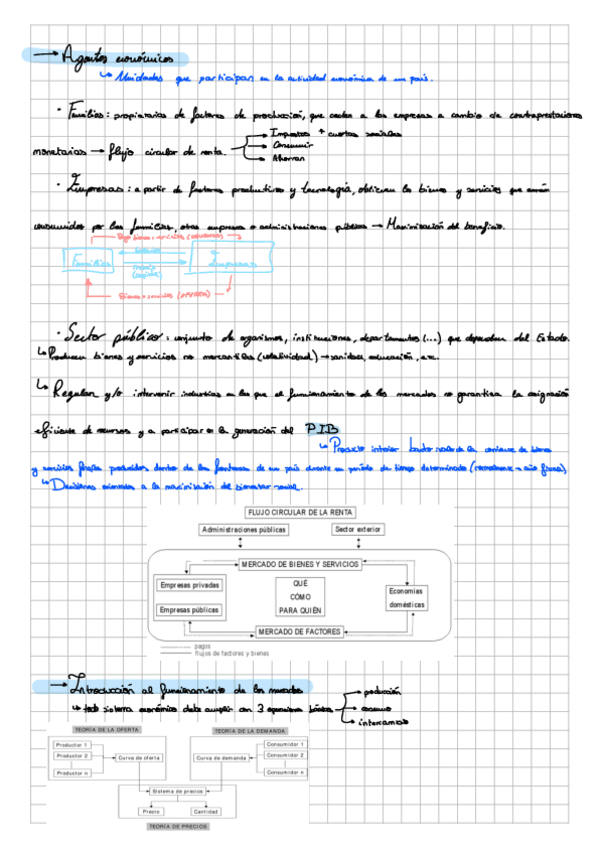 → Agentes económicos
↳ Unidades que participan en la actividad económica de un país.
· Familias: propietarias de factores de producción, que ceden a las empresas a cambio de contraprestaciones
monetarias → flujo circular de renta.
→ Impuestos + cuotas sociales
→ Consumir
→ Ahorran
· Empresas: a partir de factores productivos y tecnología, obtienen los bienes y servicios que serán
consumidos por las familias, otras empresas o administraciones públicas → Maximización del beneficio.
Familias
Empresas
trabajo
· Sector público: conjunto de organismos, instituciones, departamentos (...) que dependen del Estado.
↳ Producen bienes y servicios no mercantiles (colectividad) → sanidad, educación, etc.
↳ Regulan y/o intervenir industrias en las que el funcionamiento de los mercados no garantiza la asignación
eficiente de recursos y a participar en la generación del PIB
↳ Producto interior bruto: valor de la de bienes
y servicios finales producidos dentro de las fronteras de un país durante un periodo de tiempo determinado
↳ Decisiones orientadas a la maximización del bienestar social.
FLUJO CIRCULAR DE LA RENTA
Administraciones públicas
Sector exterior
MERCADO DE BIENES Y SERVICIOS
Empresas privadas
Empresas públicas
QUÉ
CÓMO
PARA QUIÉN
Economías
domésticas
MERCADO DE FACTORES
pagos
flujos de factores y bienes
→ Introducción al funcionamiento de los mercados
↳ todo sistema económico debe cumplir con 3 operaciones básicas
→ producción
→ consumo
→ intercambio
TEORÍA DE LA OFERTA
TEORÍA DE LA DEMANDA
Productor 1
Productor 2
Productor n
Curva de oferta
Curva de demanda
Consumidor 1
Consumidor 2
Consumidor n
Sistema de precios
Precio
Cantidad
TEORÍA DE PRECIOS